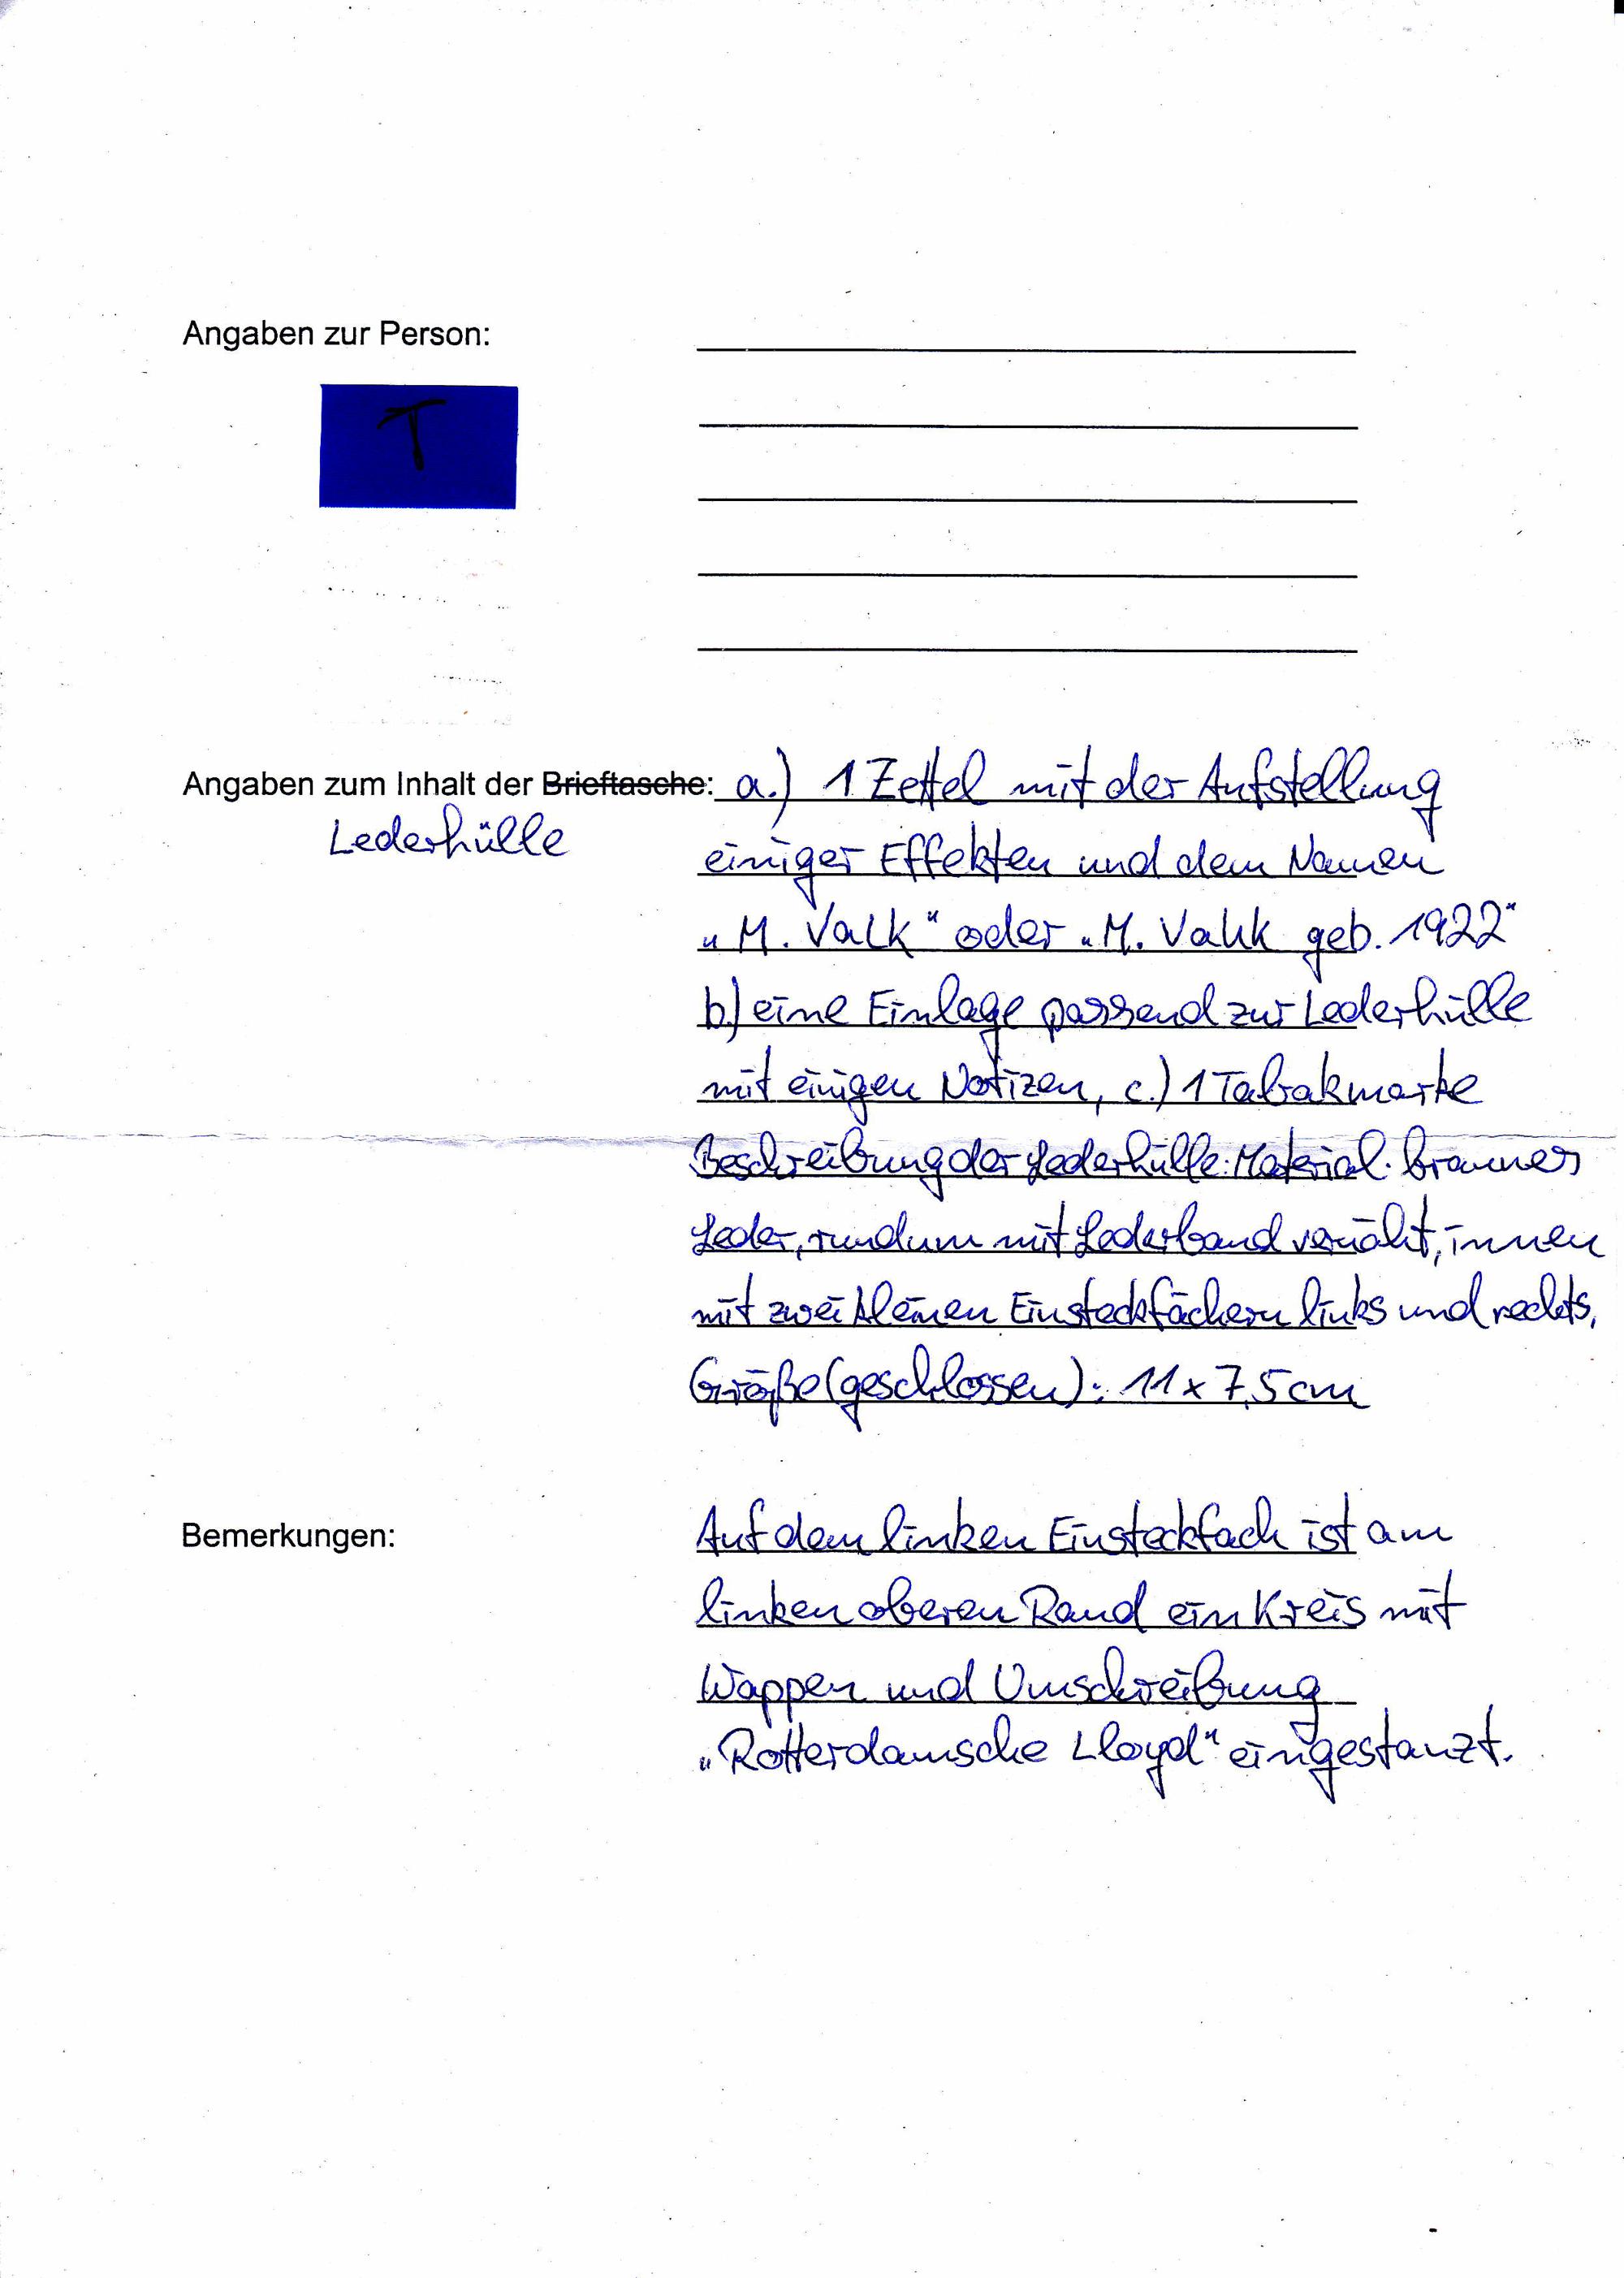 Angaben zur Person:
T
Angaben zum Inhalt der Brieftasche: a.) 1 Zettel mit der Aufstellung
Lederhülle
einiger Effekten und dem Namen
„M. Valk“ oder „M. Vahk geb. 1922“
b.) eine Einlage passend zur Lederhülle
mit einigen Notizen, c.) 1 Tabakmarke
Beschreibung der Lederhülle: Material: braunes
Leder, rundum mit Lederband vernäht, innen
mit zwei kleinen Einsteckfächern links und rechts,
Größe (geschlossen): 11 x 7,5 cm
Bemerkungen:
Auf dem linken Einsteckfach ist am
linken oberen Rand ein Kreis mit
Wappen und Umschreibung
„Rotterdamsche Lloyd“ eingestanzt.